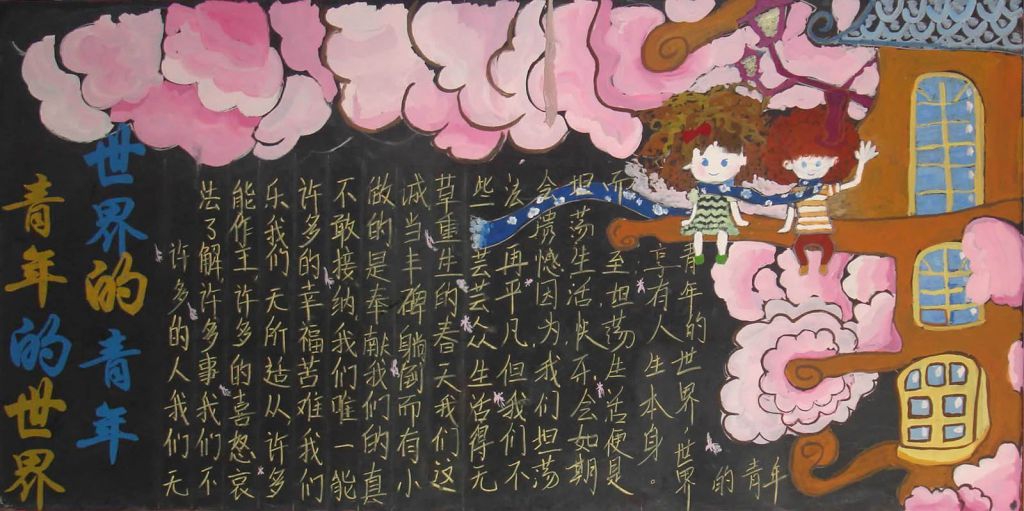 青年的世界
世界的青年
许多的人我们无
法了解许多事我们不
能作主,许多的喜怒哀
乐我们无所适从许多
许多的幸福苦难我们
不敢接纳我们唯一能
做的是奉献我们的真
诚当丰碑躺倒而有小
草重生的春天我们这
些芸芸众生活得无
法再平凡,但我们不
会遗憾因为我们坦荡
坦荡生活快乐会如期
而至.坦荡生活便是
享有人生本身。
青年的世界,世界
的青年